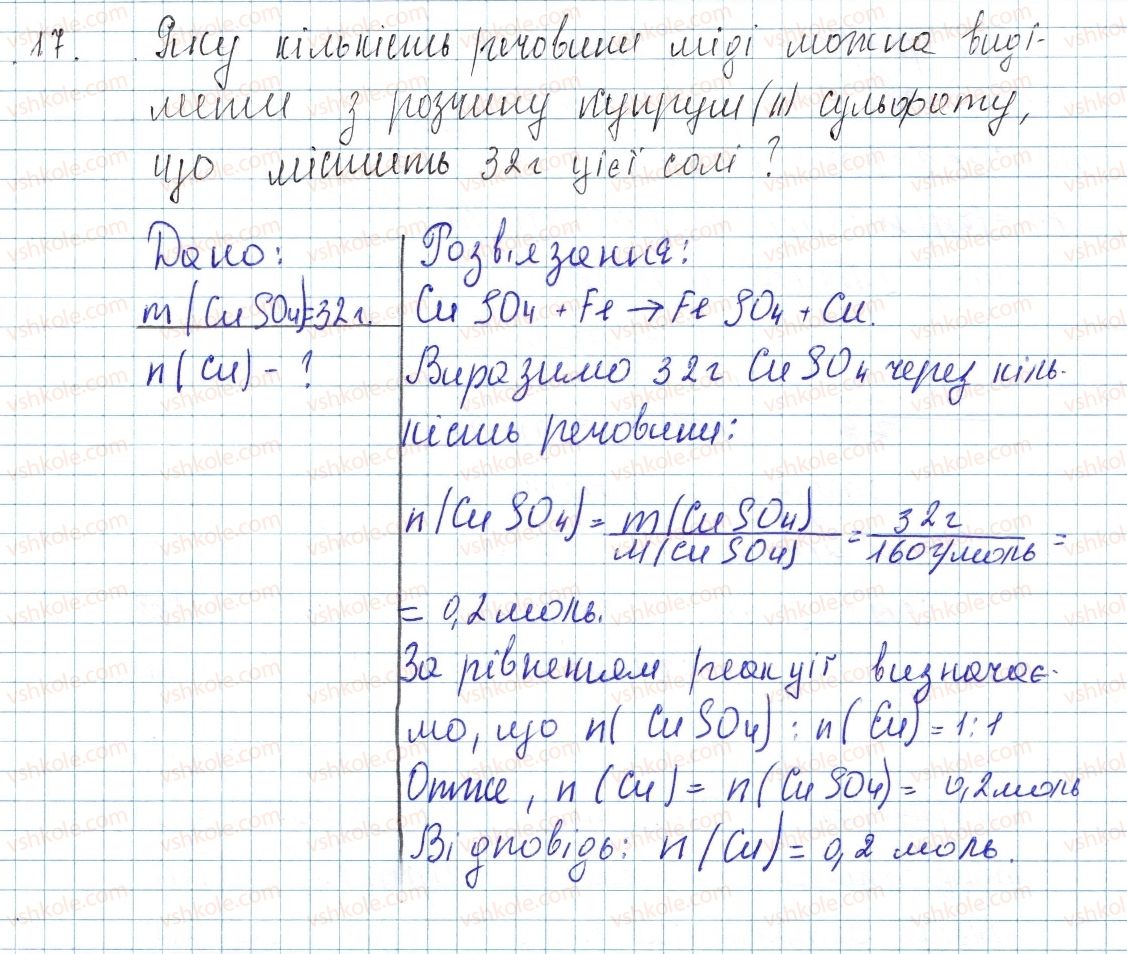 17. Яку кількість речовини міді можна виді-
лити з розчину купрум (II) сульфату,
що містить 32 г цієї солі?
Дано:
m(CuSO4)=32г.
n(Cu) - ?
Розвязання:
CuSO4 + Fe → FeSO4 + Cu.
Виразимо 32г CuSO4 через кіль-
кість речовини:
n(CuSO4) = m(CuSO4)/M(CuSO4) = 32г/160г/моль =
= 0,2 моль.
За рівнянням реакції визначає-
мо, що n(CuSO4) : n(Cu) = 1:1
Отже, n(Cu) = n(CuSO4) = 0,2 моль
Відповідь: n(Cu) = 0,2 моль.
vshkole.com